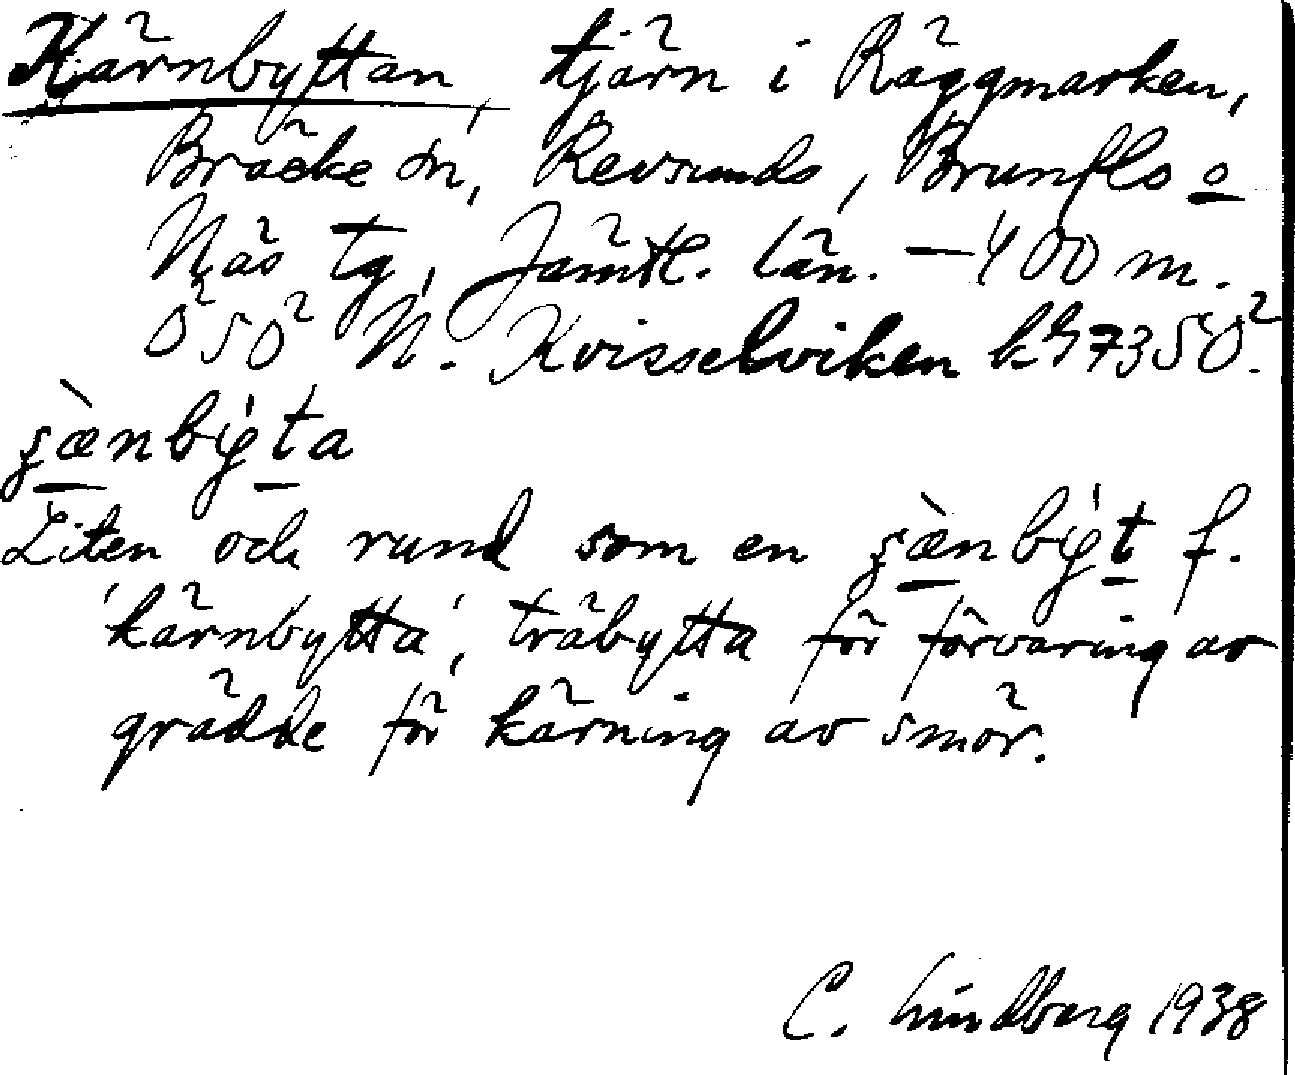 Kärnbyttan, tjärn i Räggmarken,
Bräcke sn, Revsunds, Brunflo o
Näs tg, Jämtl. län. – 400 m.
OSO N. Kvisselviken kbl 73 SO.
şænby̍ta
Liten och rund som en şænby̍t f.
'kärnbytta', träbytta för förvaring av
grädde för kärning av smör.
C. Lindberg 1938